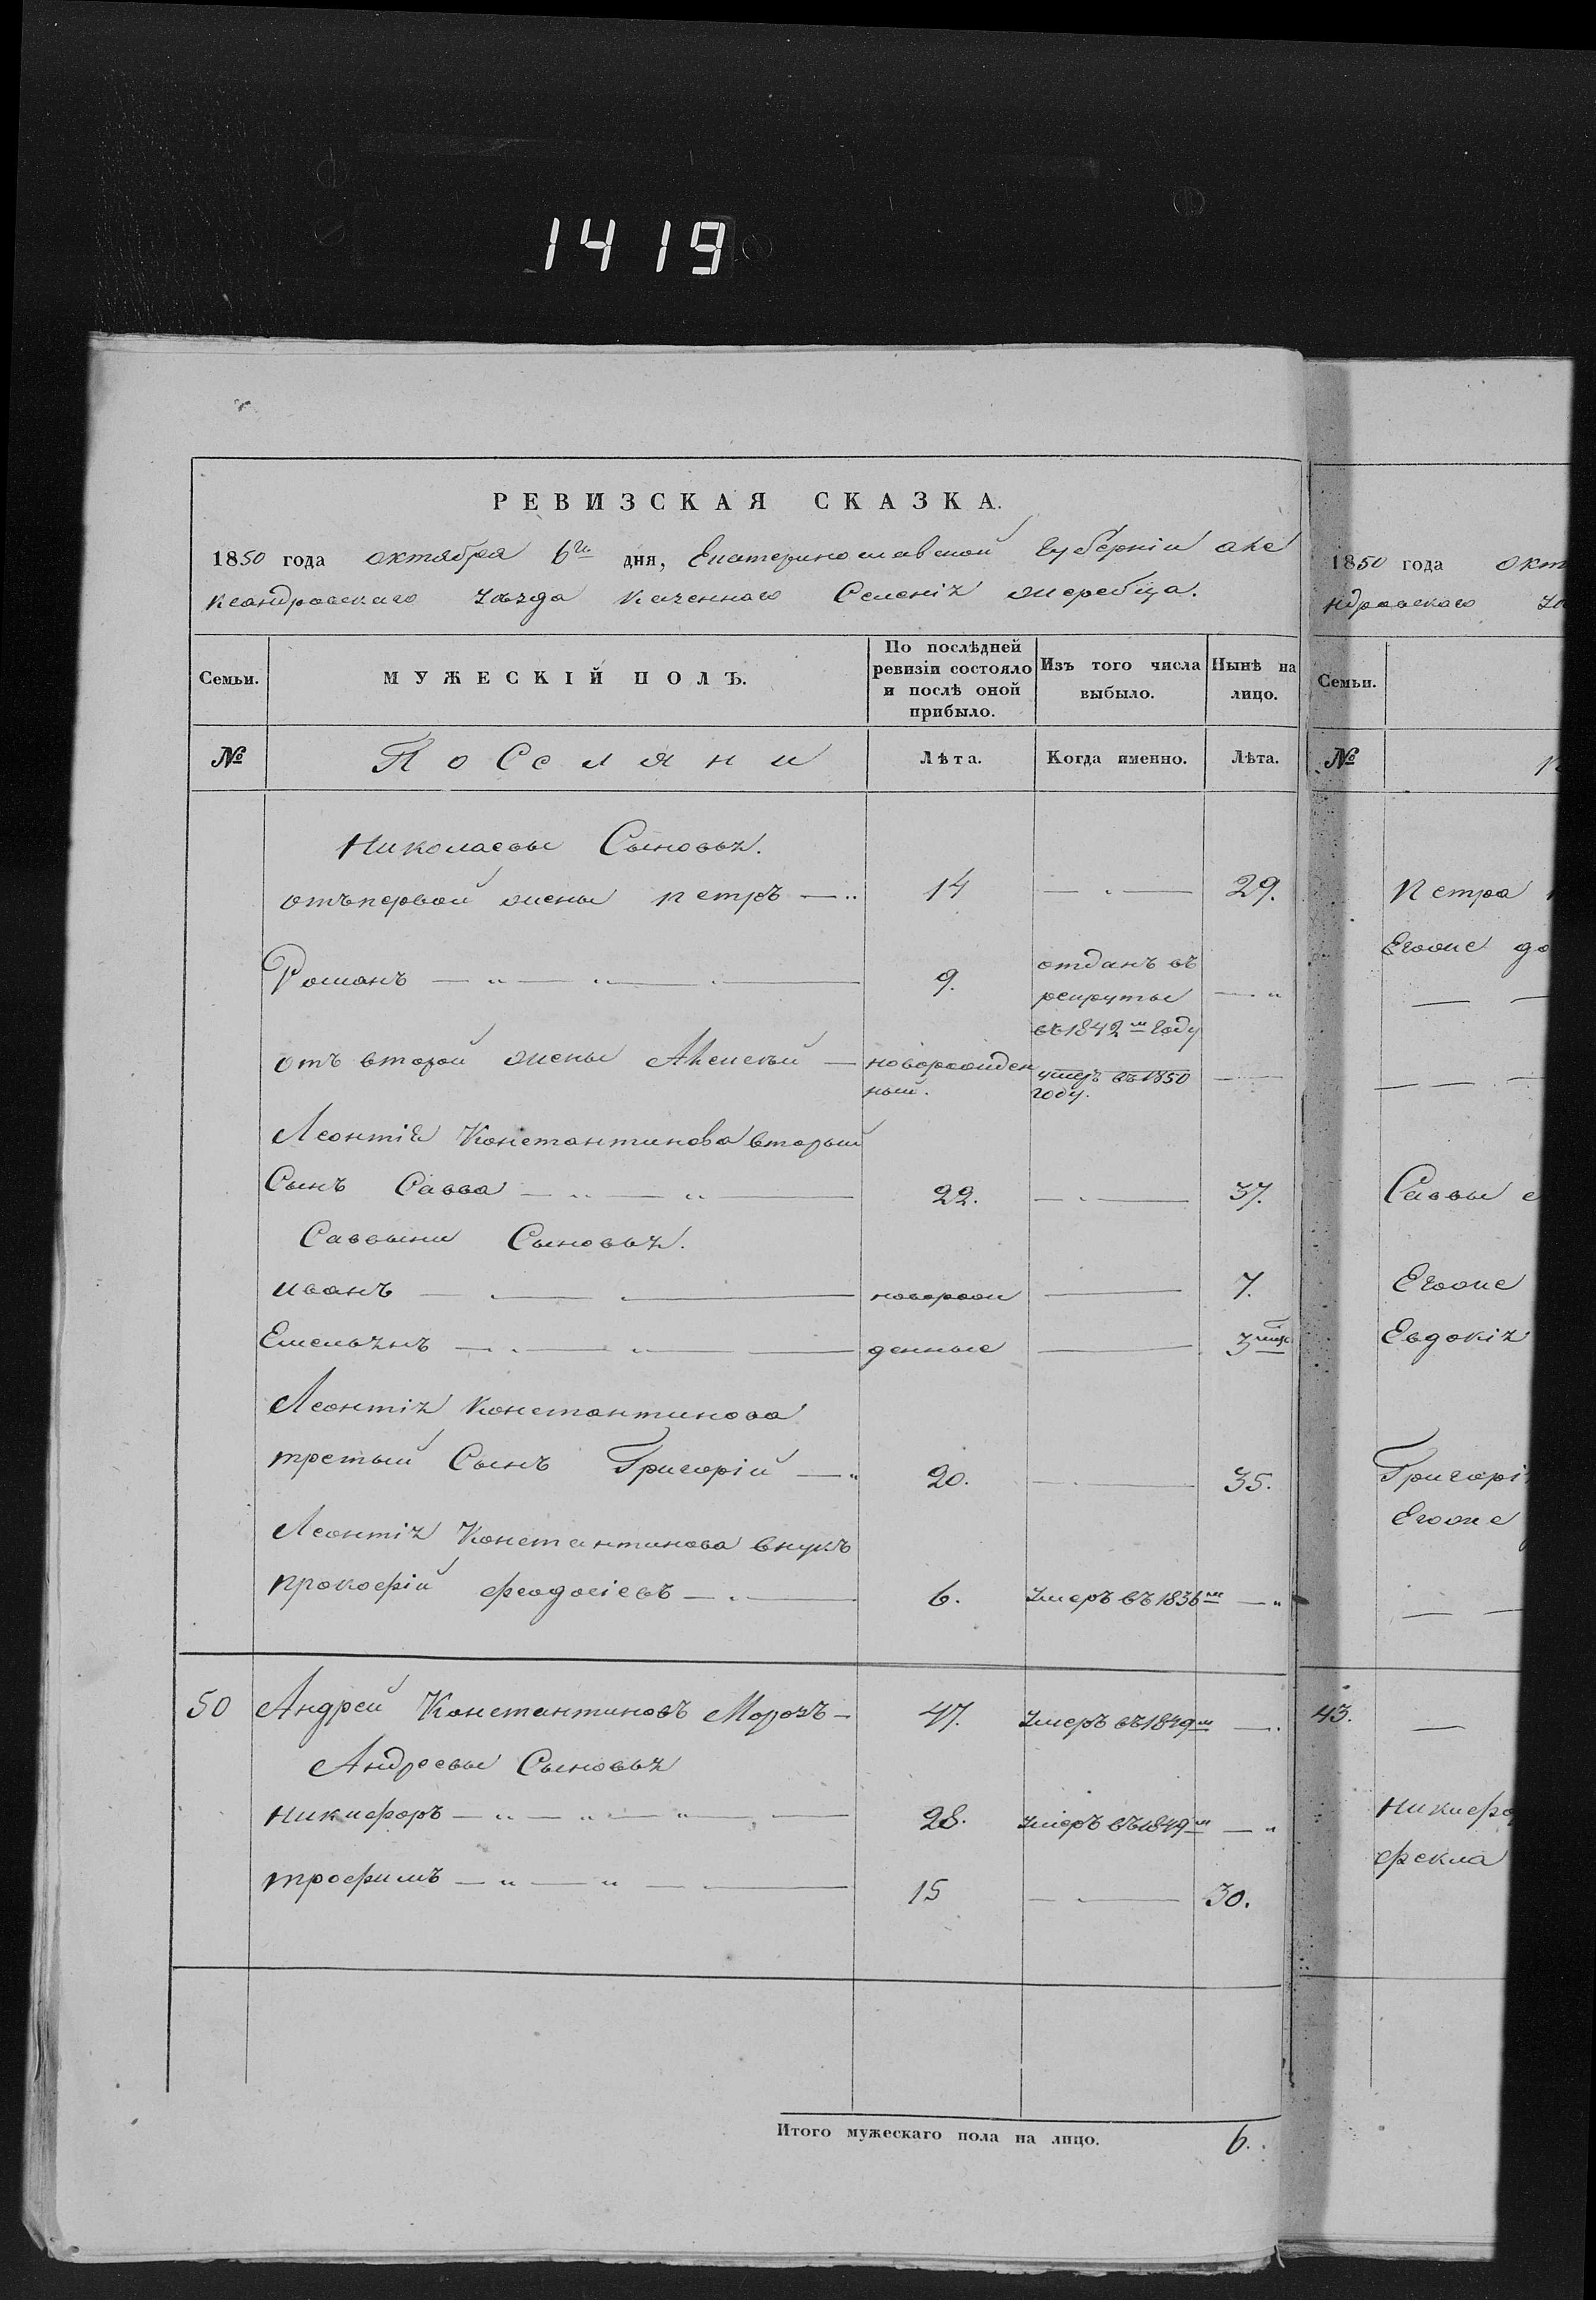 1419
РЕВИЗСКАЯ СКАЗКА.
1850 года октября 6го дня, Екатеринославской губерніи але
ксандровскаго уѣзда казеннаго Селенія жеребца.
Семьи. МУЖЕСКІЙ ПОЛЪ. По послѣдней ревизіи состояло и послѣ оной прибыло. Изъ того числа выбыло. Нынѣ на лицо.
№ Поселяни Лѣта. Когда именно. Лѣта.
Николаевы Сыновья.
отъ первой жены петръ — 14 — 29.
Романъ — 9. отданъ въ рекруты въ 1842м году —
отъ второй жены Алексѣй — новорожден ный. умеръ въ 1850 году. —
Леонтія Константинова вторый
Сынъ Савва — 22. — 37.
Саввины Сыновья.
иванъ — новорож — 7.
Емельянъ — денные — 3 мѣс
Леонтія Константинова
третый Сынъ Григорій — 20. — 35.
Леонтія Константинова внукъ
прокофій феодосіевъ — 6. умеръ въ 1836м —
50 Андрей Константиновъ Морозъ — 47. умеръ въ 1849м —
Андреевы Сыновья
никифоръ — 28. умеръ въ 1849м —
трофимъ — 15 — 30.
Итого мужескаго пола на лицо. 6.
1850 года окт
ндровскаго
Семьи.
№
петра
Егоже до
Саввы
Егоже
Евдокія
Григорі
Егоже
43. —
никифо
фекла